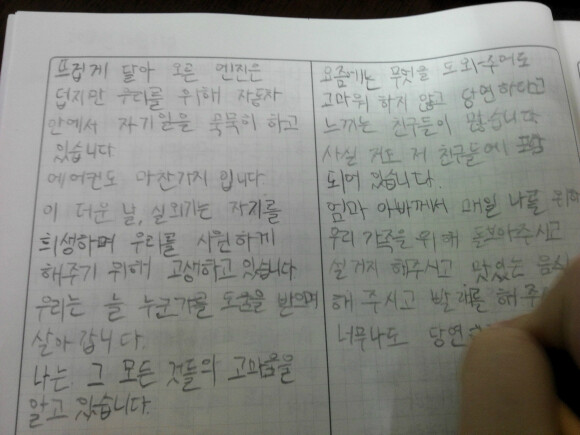 뜨겁게 달아 오른 엔진은
덥지만 우리를 위해 자동차
안에서 자기일을 묵묵히 하고
있습니다
에어컨도 마찬가지 입니다.
이 더운 날, 실외기는 자기를
희생하며 우리를 시원하게
해주기 위해 고생하고 있습니다
우리는 늘 누군가를 도움을 받으며
살아 갑니다.
나는 그 모든 것들의 고마움을
알고 있습니다.
요즘에는 무엇을 도와주어도
고마워 하지 않고 당연하다고
느끼는 친구들이 많습니다
사실 저도 저 친구들에 포함
되어 있습니다.
엄마 아빠께서 매일 나를 위해
우리 가족을 위해 돌보아주시고
설거지 해주시고 맛있는 음식
해 주시고 빨래를 해주
너무나도 당연